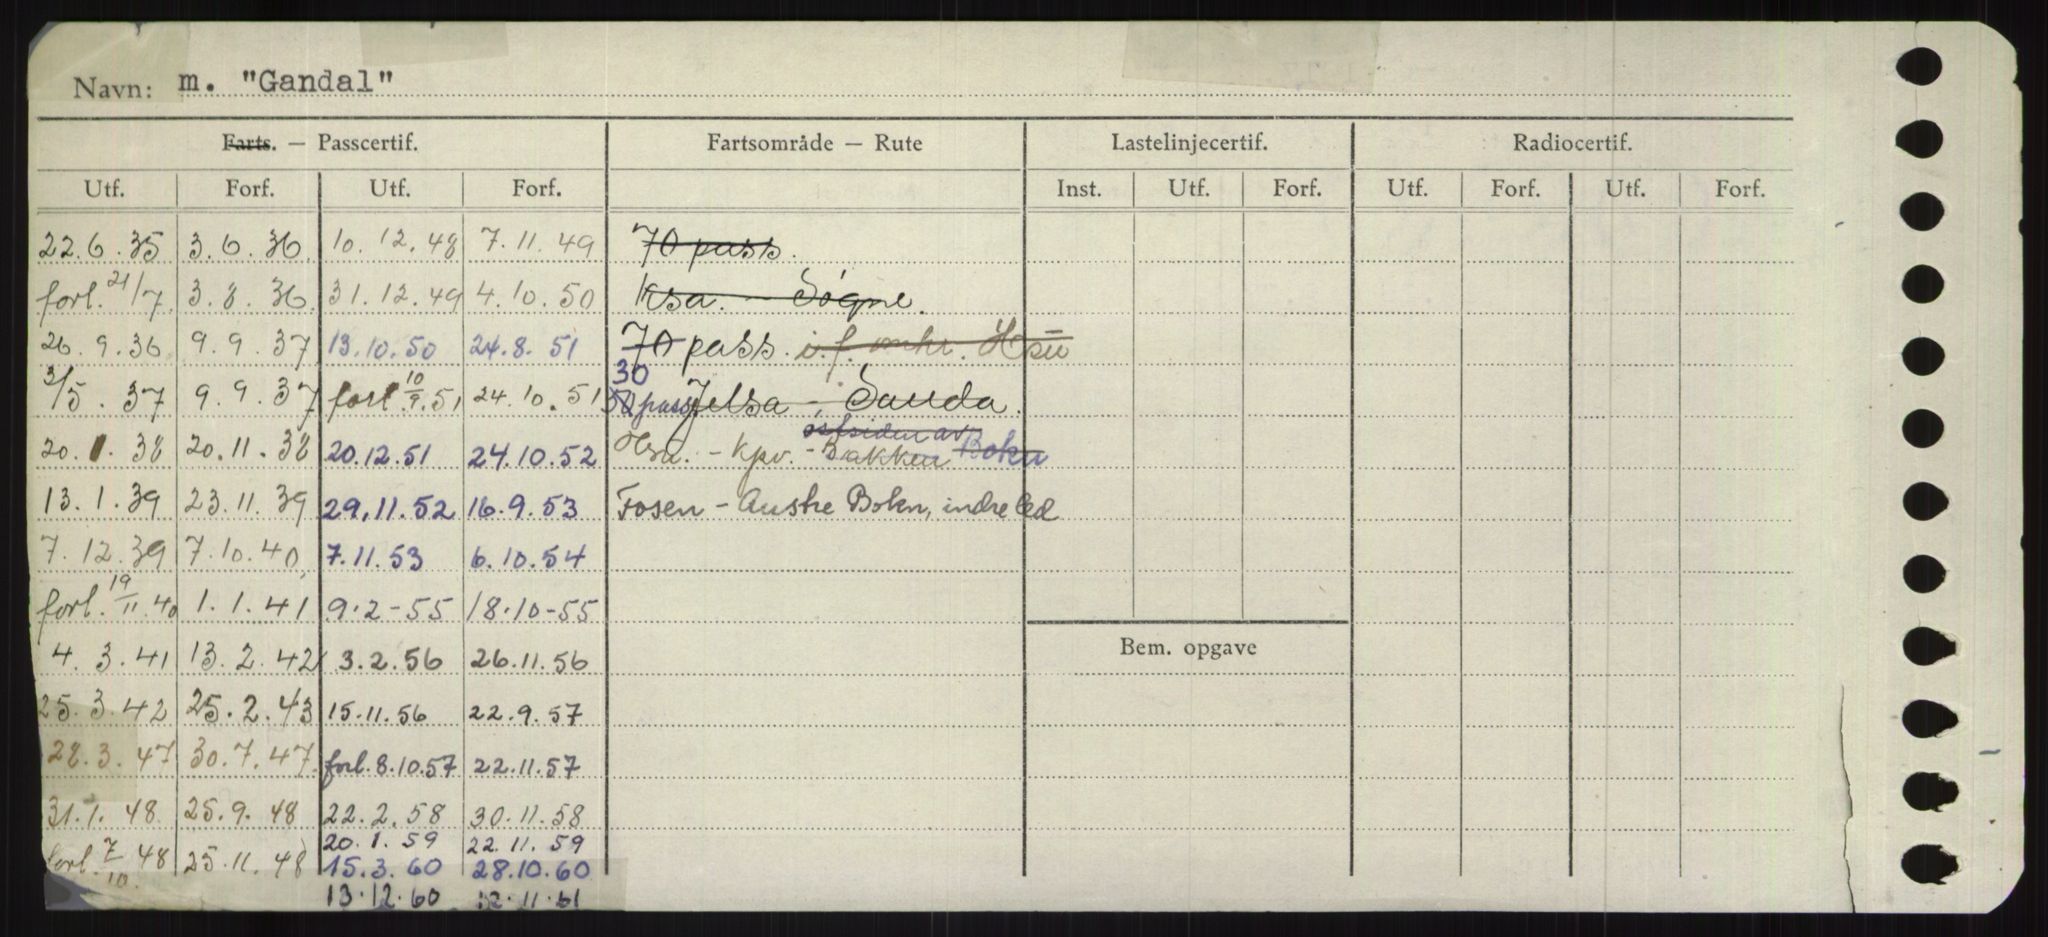 Navn: m. "Gandal"
Farts. — Passcertif. Fartsområde — Rute Lastelinjecertif. Radiocertif.
Utf. Forf. Utf. Forf. Inst. Utf. Forf. Utf. Forf. Utf. Forf.
22.6.35 3.6.36 10.12.48 7.11.49 70 pass.
forl. 21/7 3.8.36 31.12.49 4.10.50 Ksa. - Søgne.
26.9.36 9.9.37 13.10.50 24.8.51 70 pass. i.f.
30
3/5.37 9.9.37 forl. 10/9.51 24.10.51 50 pass Jelsa - Sauda.
østsiden av
20.1.38 20.11.38 20.12.51 24.10.52 - Kpv. - Bakken Bokn
13.1.39 23.11.39 29.11.52 16.9.53 Fosen - Austre Bokn, indre led
7.12.39 7.10.40 7.11.53 6.10.54
forl. 19/11.40 1.1.41 9.2-55 18.10-55
4.3.41 13.2.42 3.2.56 26.11.56
Bem. opgave
25.3.42 25.2.43 15.11.56 22.9.57
28.3.47 30.7.47. forl. 8.10.57 22.11.57
31.1.48 25.9.48 22.2.58 30.11.58
20.1.59 22.11.59
forl. 7/10.48 25.11.48 15.3.60 28.10.60
13.12.60 12.11.61